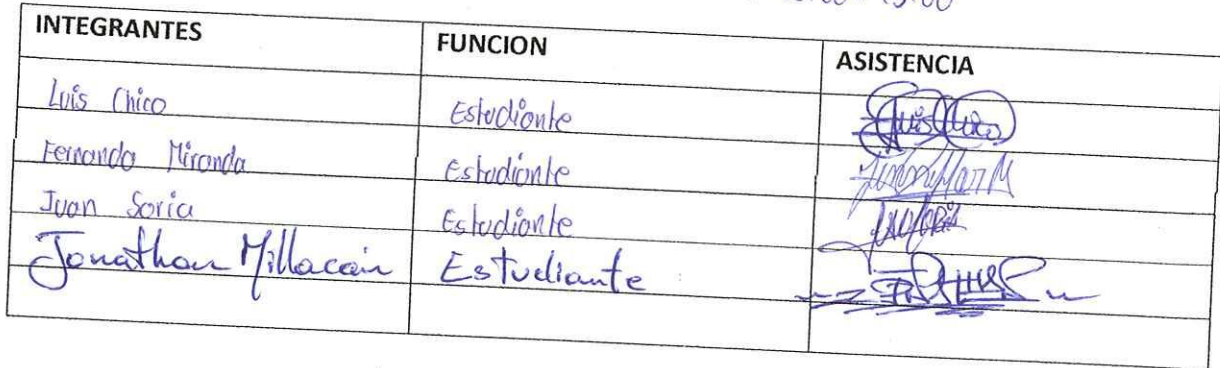 INTEGRANTES FUNCION ASISTENCIA
Luis Chico Estudiante Luis Chico
Fernando Miranda Estudiante
Juan Soria Estudiante
Jonathan Millacain Estudiante